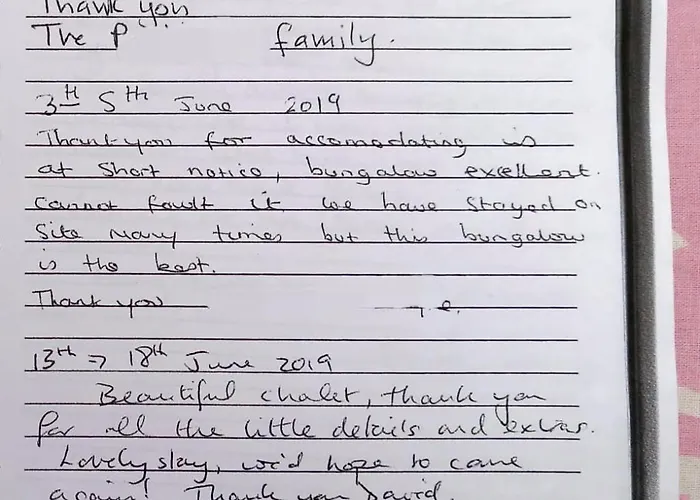 Thank you
The P family.
3th 5th June 2019
Thankyou for accomodating us
at Short notice, bungalow excellent.
Cannot fault it we have Stayed on
Site many times but this bungalow
is the best.
Thank you
13th => 18th June 2019
Beautiful chalet, thank you
for all the little details and extras.
Lovely stay, we'd hope to come
again! Thank you David.